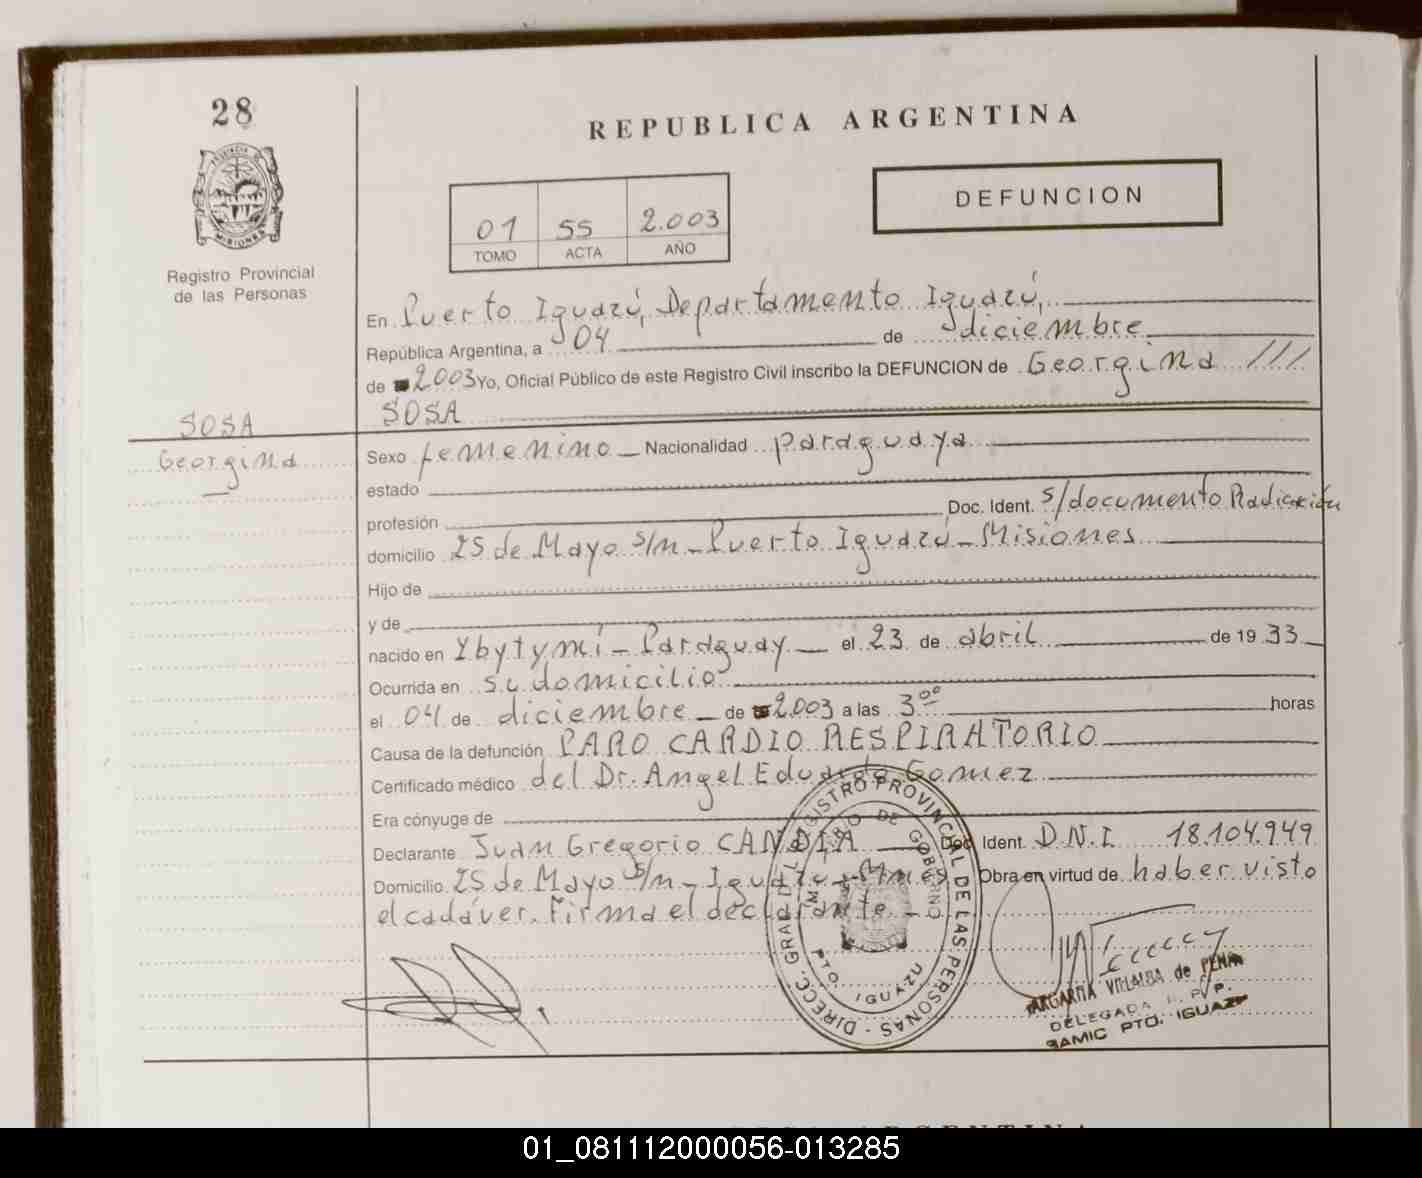 28
REPUBLICA ARGENTINA
PROVINCIA DE MISIONES
DEFUNCION
01 55 2.003
TOMO ACTA AÑO
Registro Provincial
de las Personas
En Puerto Iguazú, Departamento Iguazú,
República Argentina, a 04 de diciembre
de 2.003 Yo, Oficial Público de este Registro Civil inscribo la DEFUNCION de Georgina ///
SOSA
SOSA
Georgina
Sexo femenino Nacionalidad paraguaya
estado
profesión Doc. Ident. s/documento Radicación
domicilio 25 de Mayo s/n - Puerto Iguazú - Misiones
Hijo de
y de
nacido en Ybytymí - Paraguay el 23 de abril de 1933
Ocurrida en su domicilio
el 04 de diciembre de 2.003 a las 3ºº horas
Causa de la defunción PARO CARDIO RESPIRATORIO
Certificado médico del Dr. Angel Eduardo Gomez
Era cónyuge de
Declarante Juan Gregorio CANDIA Doc. Ident. D.N.I. 18.104.949
Domicilio 25 de Mayo s/n - Iguazú - Mnes Obra en virtud de haber visto
el cadáver. Firma el declarante.
DIRECC. GRAL. DEL REGISTRO PROVINCIAL DE LAS PERSONAS
MINISTERIO DE GOBIERNO
PTO. IGUAZU
MARGARITA VILLALBA de PENA
DELEGADA R. P. P.
SAMIC PTO. IGUAZU
01_081112000056-013285